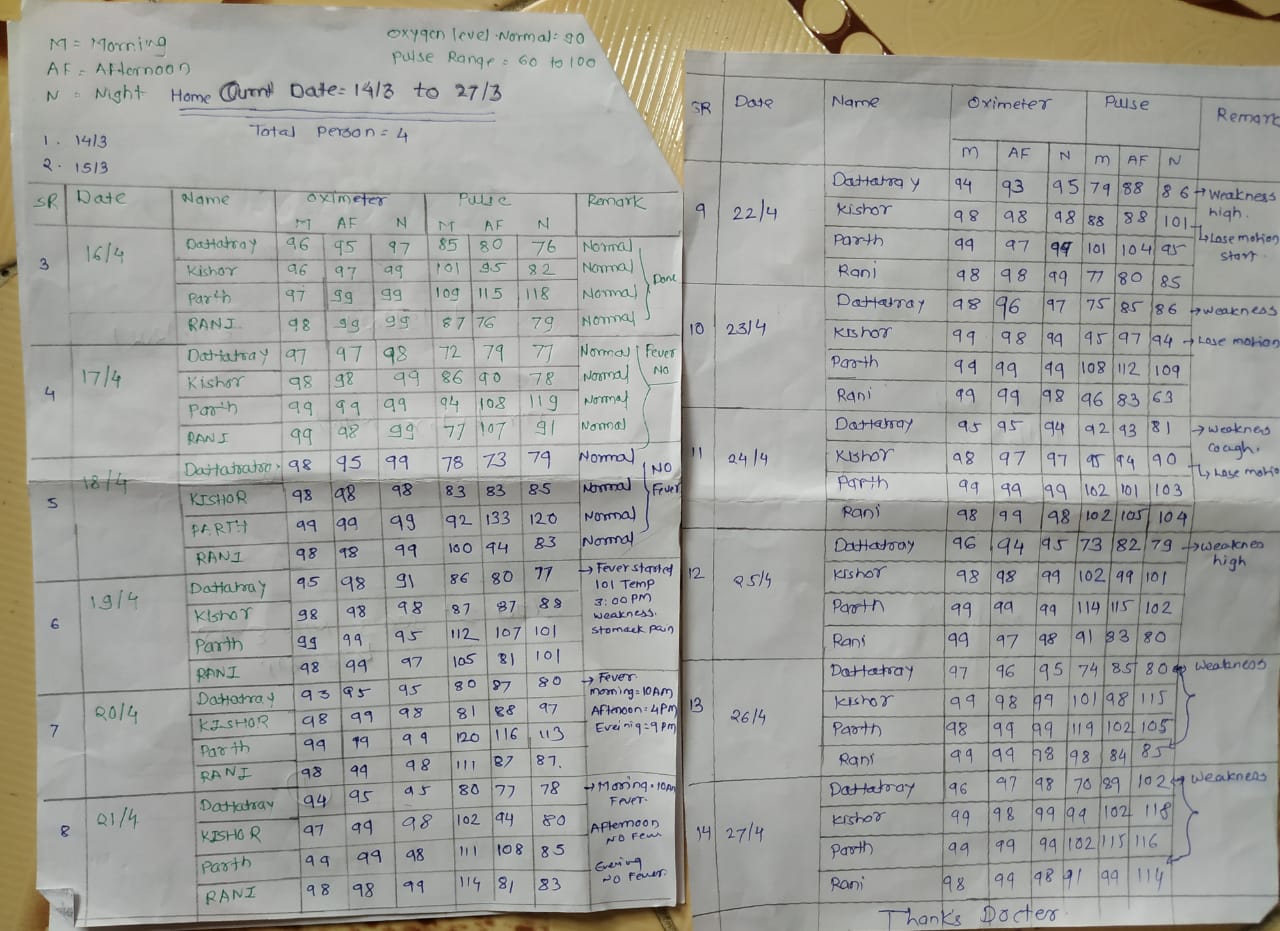 M = Morning
AF = Afternoon
N = Night
Oxygen level Normal = 90
Pulse Range = 60 to 100
Home Date = 14/3 to 27/3
Total Person = 4
1. 14/3
2. 15/3
SR Date Name Oximeter Pulse Remark
M AF N M AF N
3 16/4 Dattatray 96 95 97 85 80 76 Normal
Kishor 96 97 99 101 95 82 Normal Done
Parth 97 99 99 109 115 118 Normal
RANI 98 99 99 87 76 79 Normal
4 17/4 Dattatray 97 97 98 72 79 77 Normal Fever
Kishor 98 98 99 86 90 78 Normal NO
Parth 99 99 99 94 108 119 Normal
RANI 99 98 99 77 107 91 Normal
5 18/4 Dattatratro. 98 95 99 78 73 79 Normal NO
KISHOR 98 98 98 83 83 85 Normal Fever
PARTH 99 99 99 92 133 120 Normal
RANI 98 98 99 100 94 83 Normal
6 19/4 Dattatray 95 98 91 86 80 77 → Fever started
101 Temp
3:00 PM
Kishor 98 98 98 87 87 88 weakness.
Parth 99 99 95 112 107 101 stomack pain
RANI 98 99 97 105 81 101
7 20/4 Dattatray 93 95 95 80 87 80 → Fever
morning = 10AM
KISHOR 98 99 98 81 88 97 Afternoon = 4PM
Parth 99 99 99 120 116 113 Evening = 9 PM
RANI 98 99 98 111 87 87.
8 21/4 Dattatray 94 95 95 80 77 78 → Moring. 10AM
Fever.
KISHOR 97 99 98 102 94 80 Afternoon
NO Fever
Parth 99 99 98 111 108 85 Evening
RANI 98 98 99 114 81 83 NO Fever.
SR Date Name Oximeter Pulse Remark
M AF N M AF N
9 22/4 Dattatray 94 93 95 79 88 86 → Weakness
high.
Kishor 98 98 98 88 88 101 → Lose motion
start.
Parth 99 97 99 101 104 95
Rani 98 98 99 77 80 85
10 23/4 Dattatray 98 96 97 75 85 86 → weakness
Kishor 99 98 99 95 97 94 → Lose motion
Parth 99 99 99 108 112 109
Rani 99 99 98 96 83 63
11 24/4 Dattatray 95 95 94 92 93 81 → weakness
cough.
Kishor 98 97 97 95 94 90 → Lose motio
Parth 99 99 99 102 101 103
Rani 98 99 98 102 105 104
12 25/4 Dattatray 96 94 95 73 82 79 → weaknes
high
Kishor 98 98 99 102 99 101
Parth 99 99 99 114 115 102
Rani 99 97 98 91 83 80
13 26/4 Dattatray 97 96 95 74 85 80 weakness
Kishor 99 98 99 101 98 115
Parth 98 99 99 119 102 105
Rani 99 99 98 98 84 85
14 27/4 Dattatray 96 97 98 70 89 102 weakness
Kishor 99 98 99 99 102 118
Parth 99 99 99 102 115 116
Rani 98 99 98 91 99 114
Thanks Docter.